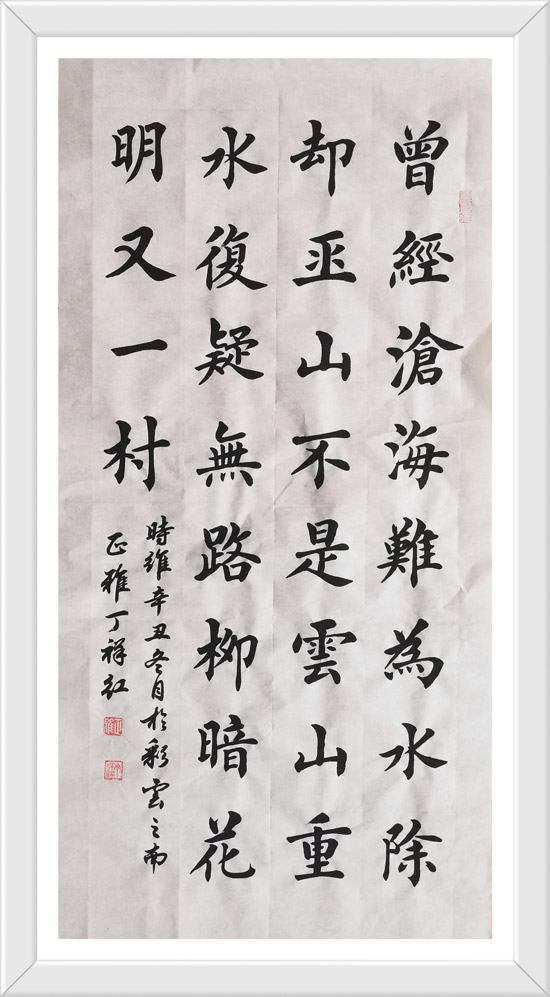 曾經滄海難為水除
却巫山不是雲山重
水復疑無路柳暗花
明又一村
時維辛丑冬月於彩雲之南
正雅丁祥紅